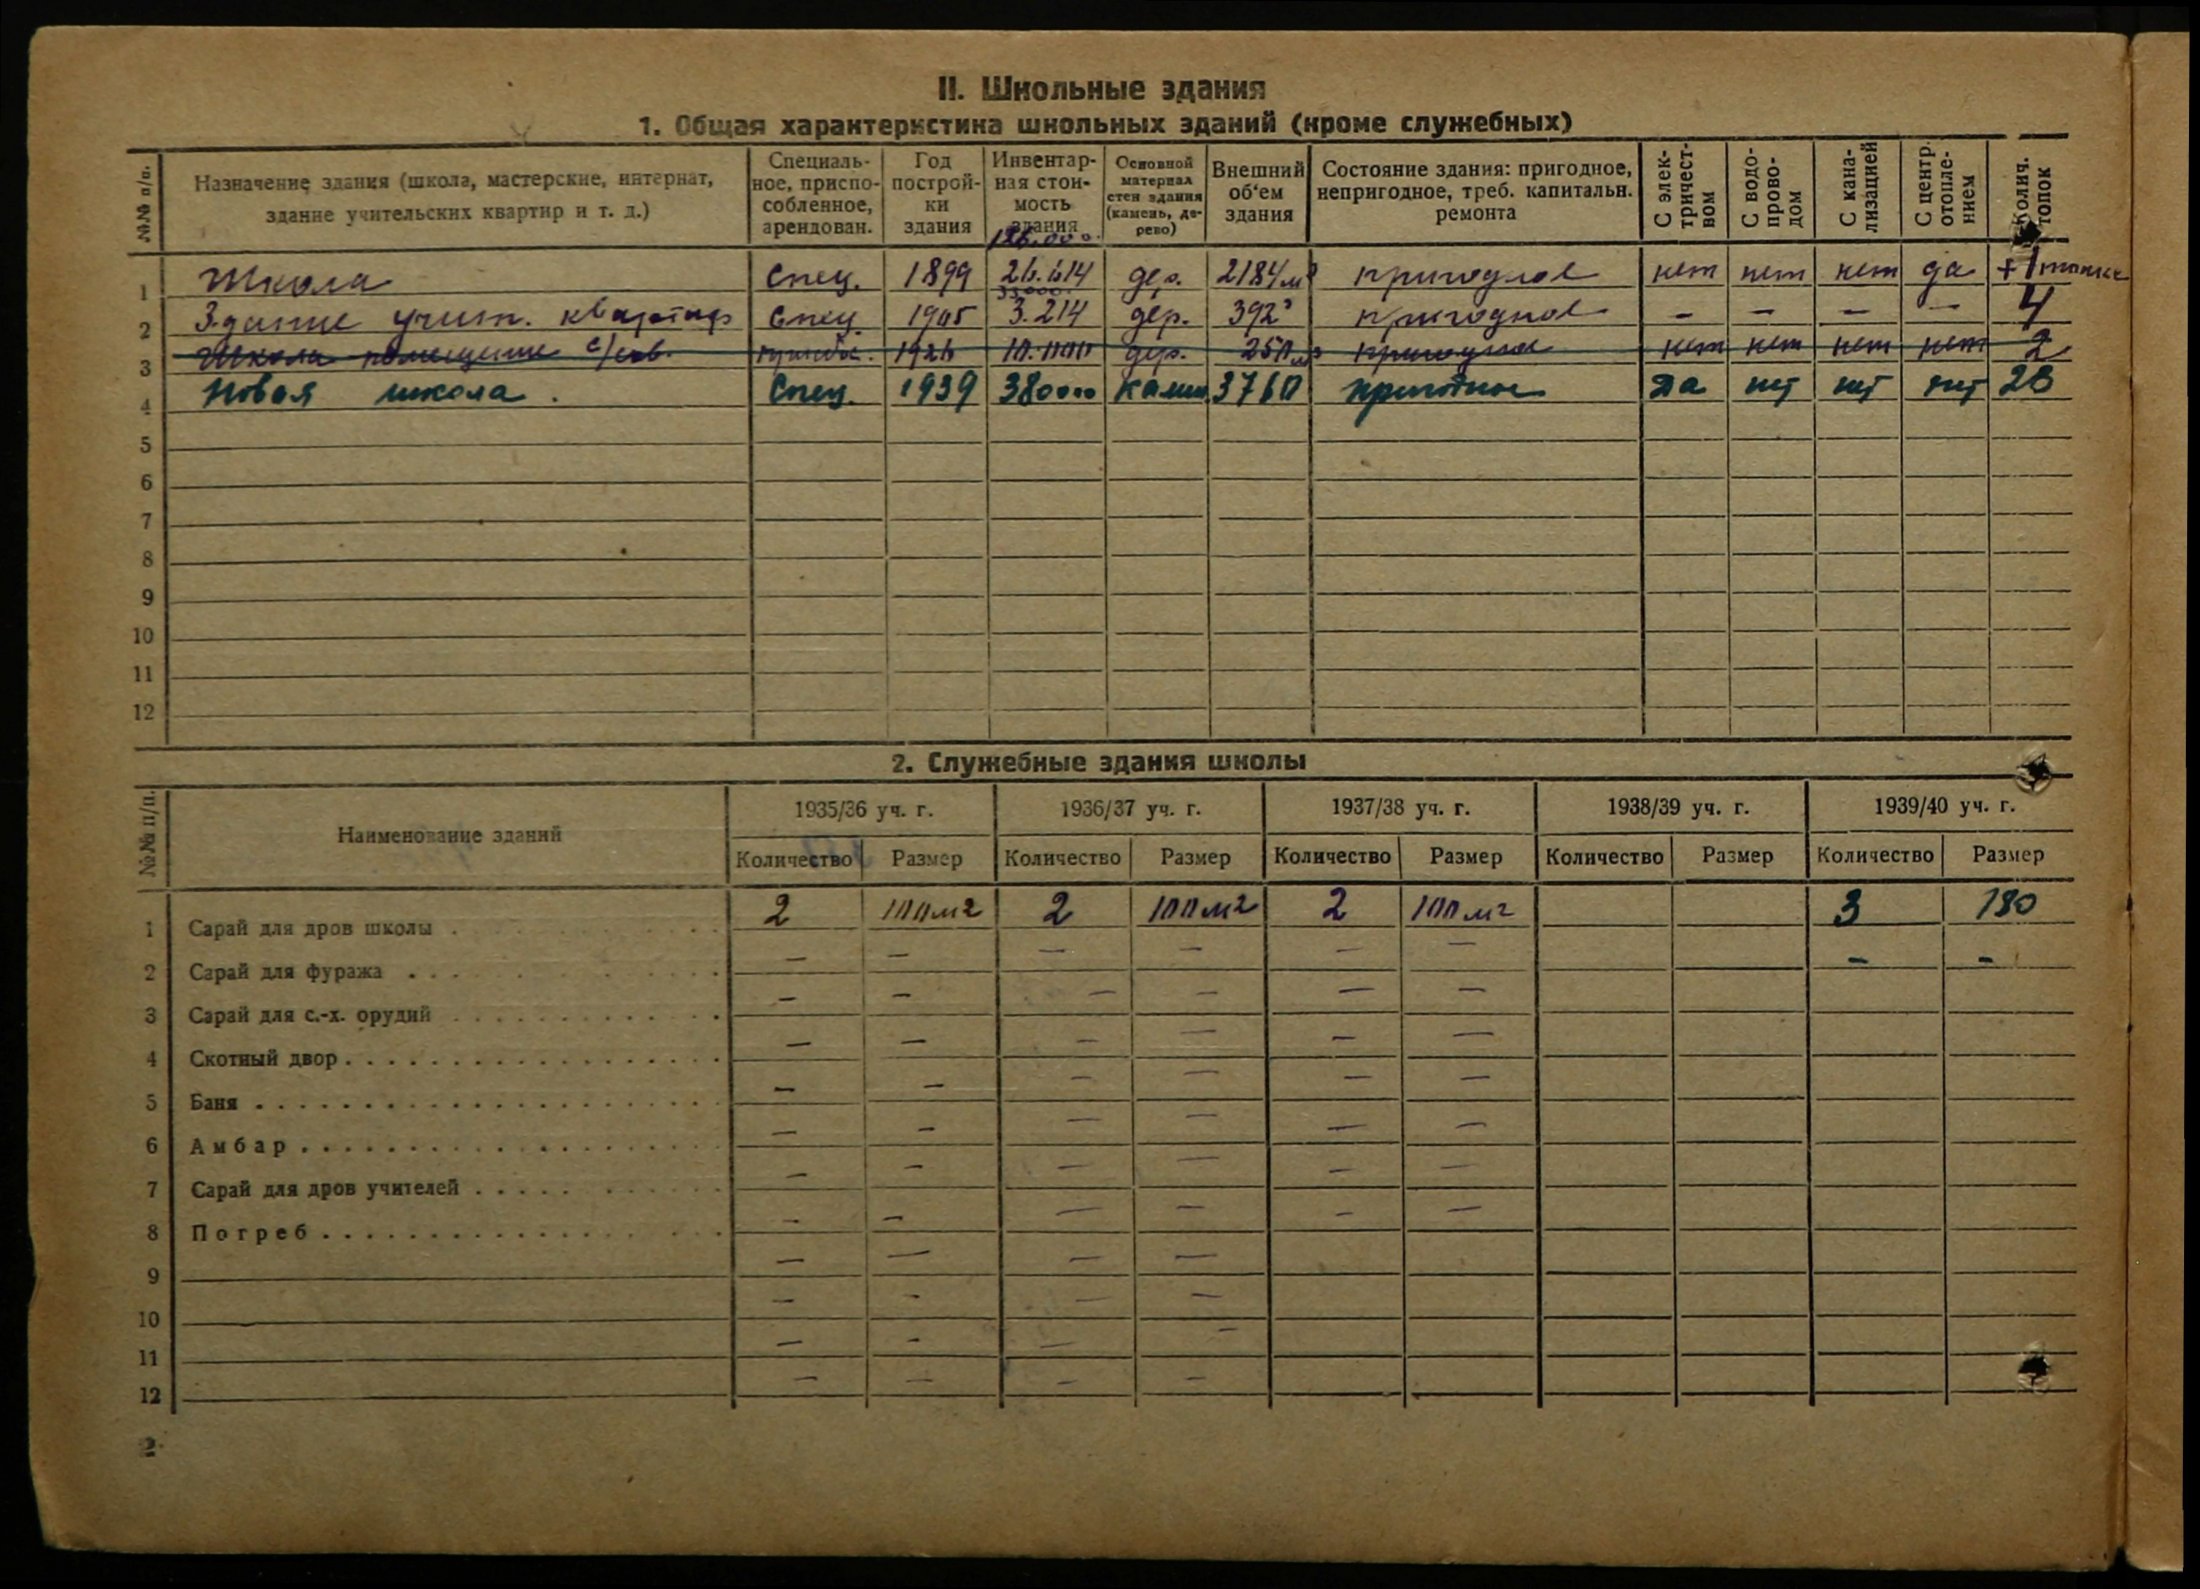 II. Школьные здания
1. Общая характеристика школьных зданий (кроме служебных)
№№ п/п. Назначение здания (школа, мастерские, интернат, здание учительских квартир и т. д.) Специальное, приспособленное, арендован. Год постройки здания Инвентарная стоимость здания Основной материал стен здания (камень, дерево) Внешний об‘ем здания Состояние здания: пригодное, непригодное, треб. капитальн. ремонта С электричеством С водопроводом С канализацией С центр. отоплением Колич. топок
126.000
1 Школа Спец. 1899 26.614 дер. 2184 м³ пригодное нет нет нет да + 1 топка
33000
2 Здание учит. квартир Спец. 1905 3.214 дер. 392³ пригодное — — — — 4
3 Школа помещение с/сов. 1926 10.000 дер. 250 м³ пригодное нет нет нет нет 2
4 Новая школа. Спец. 1939 380000 камен 3760 пригодное да нет нет нет 26
5
6
7
8
9
10
11
12
2. Служебные здания школы
№№ п/п. Наименование зданий 1935/36 уч. г. 1936/37 уч. г. 1937/38 уч. г. 1938/39 уч. г. 1939/40 уч. г.
Количество Размер Количество Размер Количество Размер Количество Размер Количество Размер
1 Сарай для дров школы 2 100 м² 2 100 м² 2 100 м² 3 180
2 Сарай для фуража — — — — — — — —
3 Сарай для с.-х. орудий — — — — — —
4 Скотный двор — — — — — —
5 Баня — — — — — —
6 Амбар — — — — — —
7 Сарай для дров учителей — — — — — —
8 Погреб — — — — — —
9 — — — —
10 — — — —
11 — — — —
12 — — — —
2